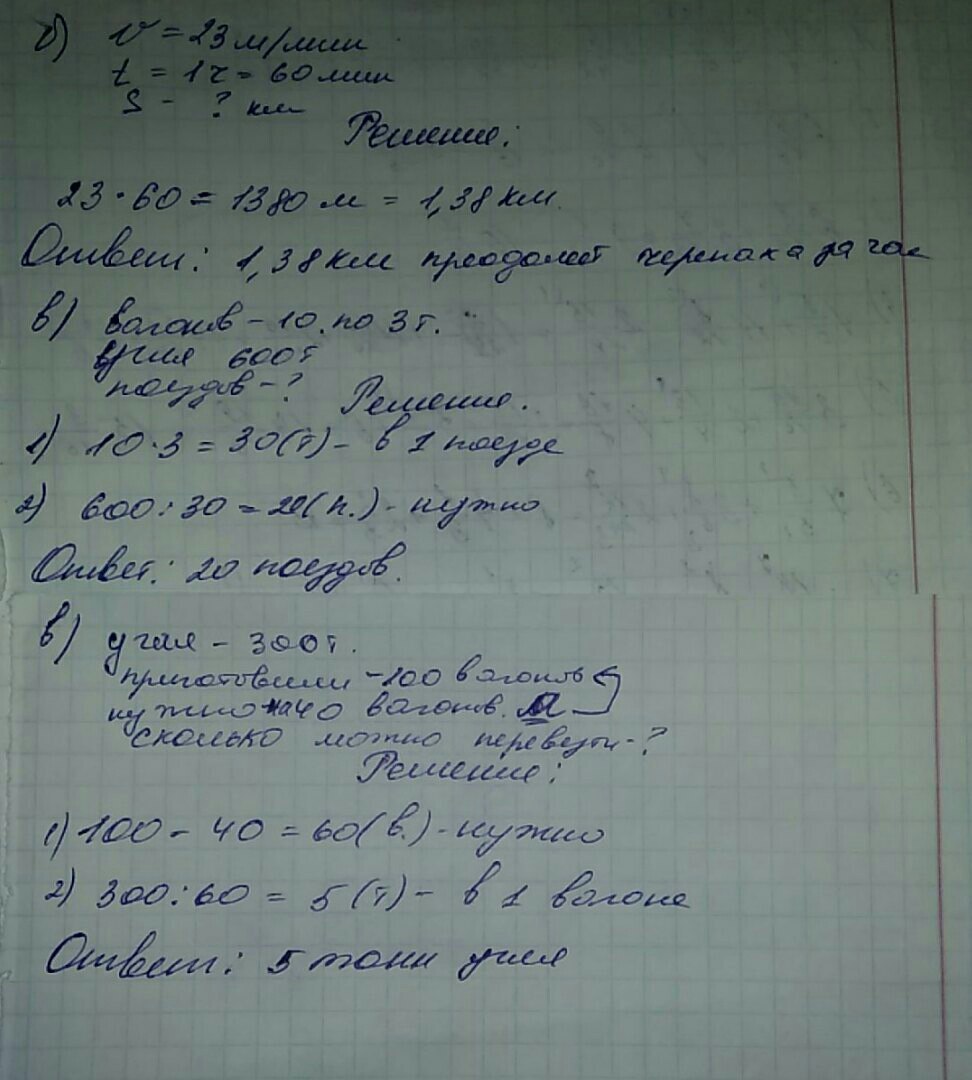 б) v = 23 м/мин
t = 1ч = 60 мин
S - ? км
Решение:
23 · 60 = 1380 м = 1,38 км.
Ответ: 1,38 км преодолеет черепаха за час
в) вагонов - 10. по 3 т.
угля 600 т
поездов - ?
Решение.
1) 10 · 3 = 30 (т) - в 1 поезде
2) 600 : 30 = 20 (п.) - нужно
Ответ: 20 поездов.
в) угля - 300 т.
приготовили - 100 вагонов
нужно на 40 вагонов.
сколько можно перевезти - ?
Решение:
1) 100 - 40 = 60 (в.) - нужно
2) 300 : 60 = 5 (т) - в 1 вагоне
Ответ: 5 тонн угля